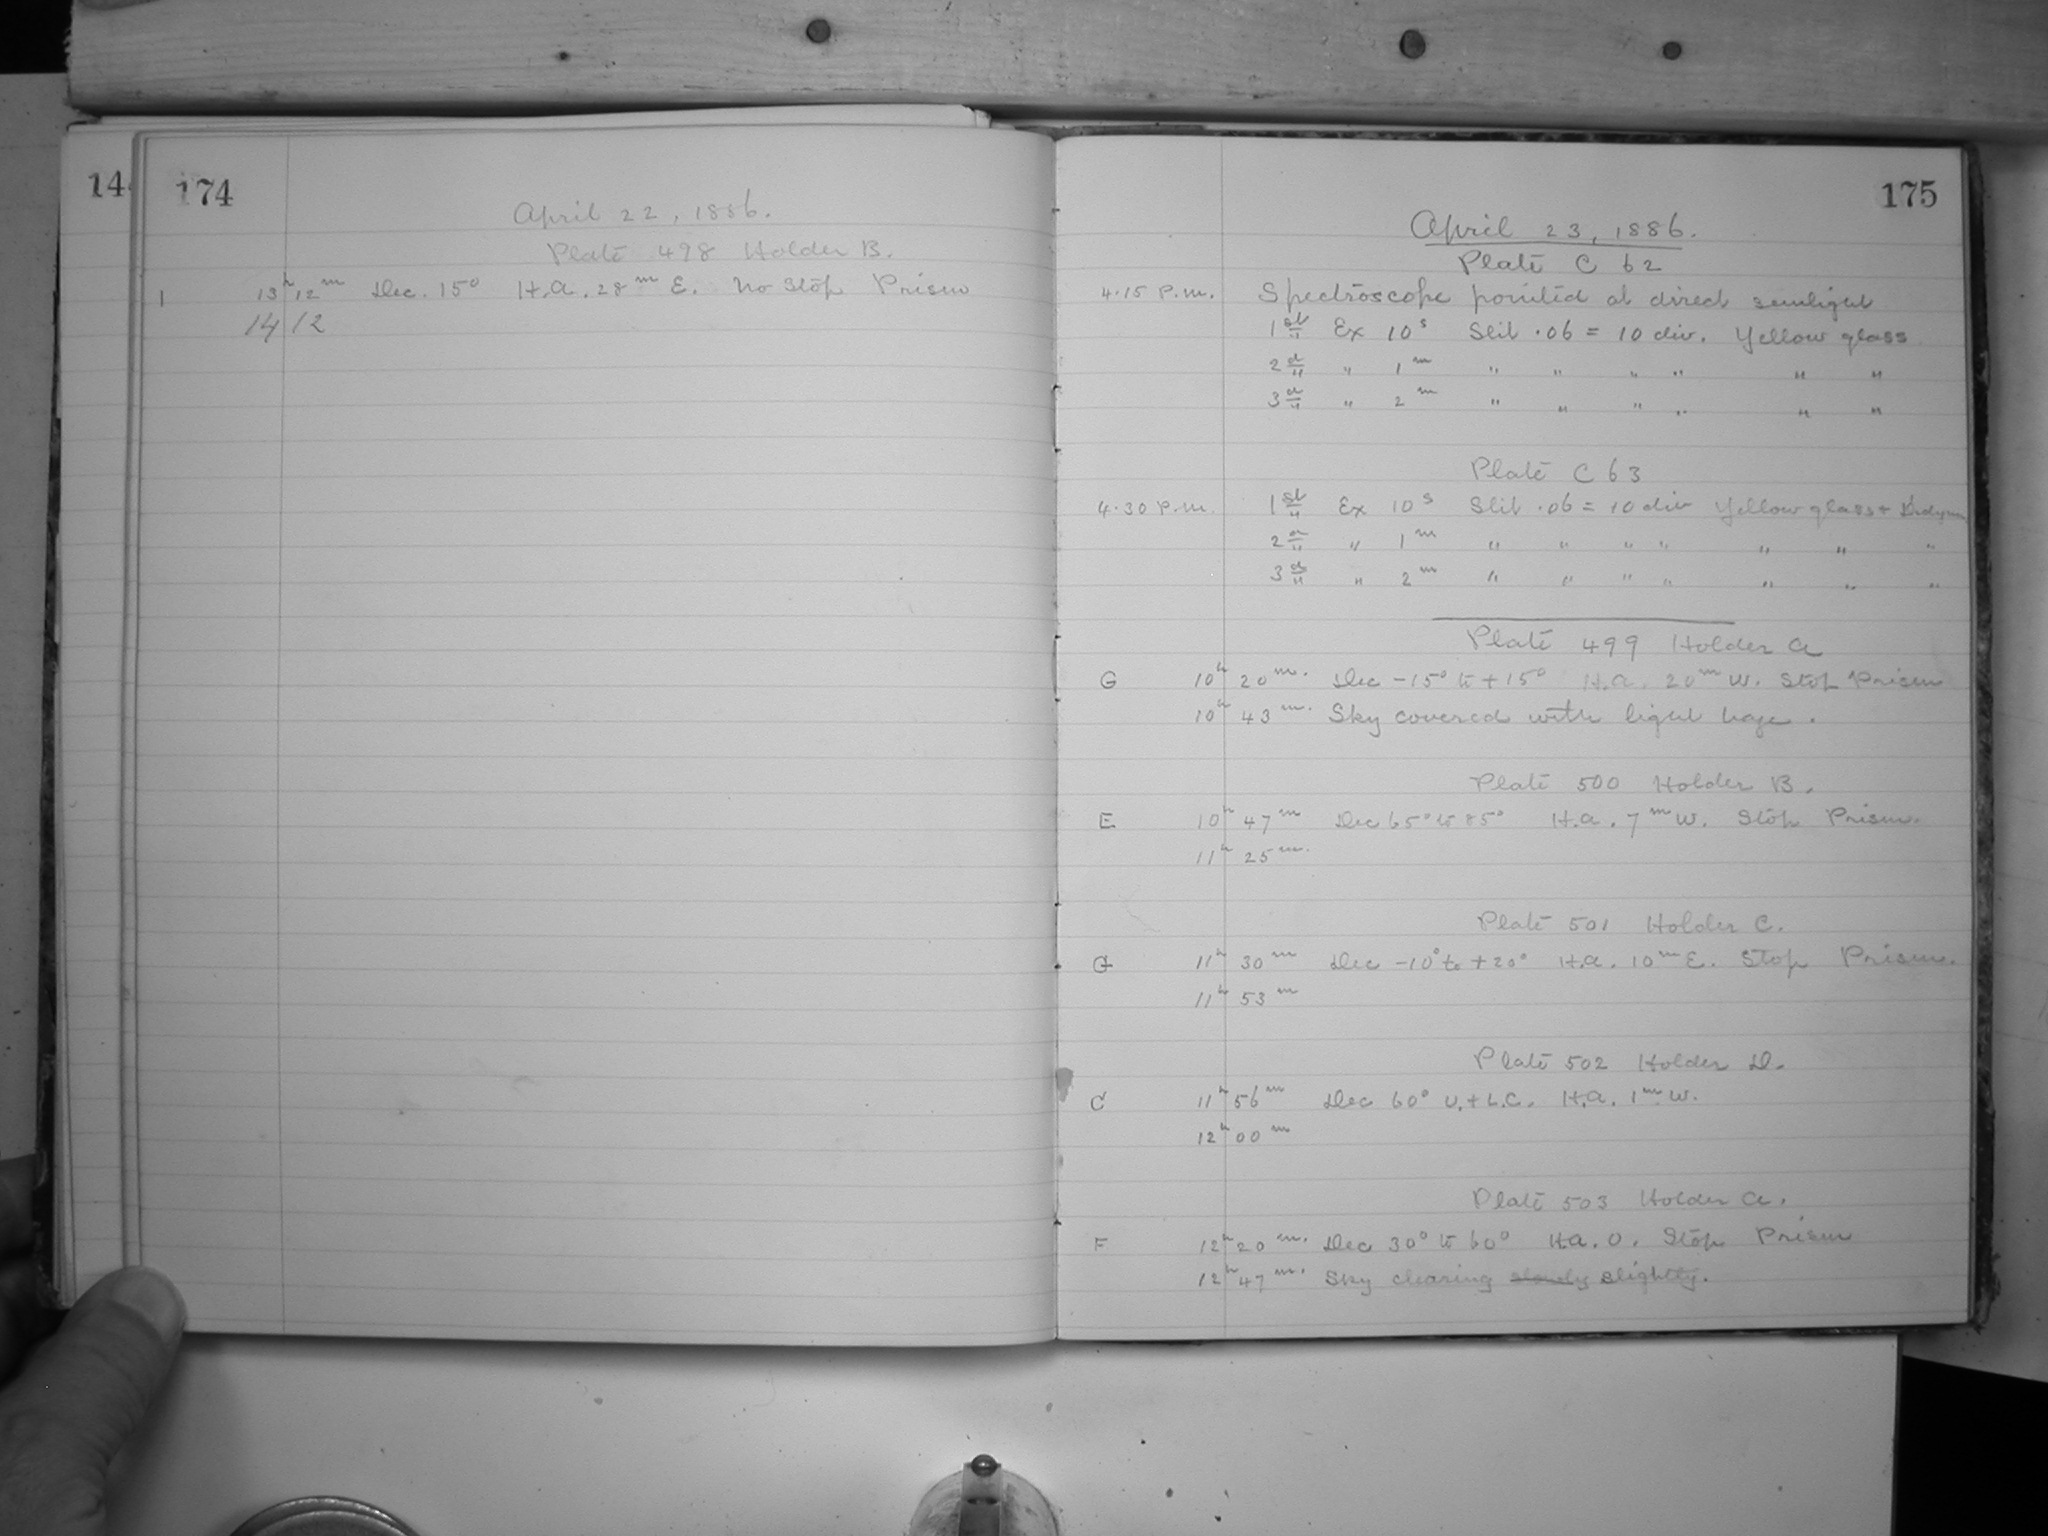 144
174
April 22, 1886.
Plate 498 Holder B.
1 13h 12m Dec. 15° H.A. 28m E. No Stop Prism
14 12
175
April 23, 1886.
Plate C 62
4.15 P.m. Spectroscope pointed at direct sunlight
1st Ex 10s Slit .06 = 10 div. Yellow glass
2d " 1m " " " " " "
3d " 2m " " " " " "
Plate C 63
4.30 P.m. 1st Ex 10s Slit .06 = 10 div Yellow glass +
2d " 1m " " " " " " "
3d " 2m " " " " " " "
Plate 499 Holder A
G 10h 20m. Dec -15° to +15° H.A. 20m W. Stop Prism
10h 43m. Sky covered with light haze.
Plate 500 Holder B.
E 10h 47m Dec 65° to 85° H.A. 7m W. Stop Prism.
11h 25m.
Plate 501 Holder C.
G 11h 30m Dec -10° to +20° H.A. 10m E. Stop Prism.
11h 53m
Plate 502 Holder D.
C 11h 56m Dec 60° U. + L.C. H.A. 1m W.
12h 00m
Plate 503 Holder A.
F 12h 20m. Dec 30° to 60° H.A. 0. Stop Prism
12h 47m. Sky clearing slowly slightly.